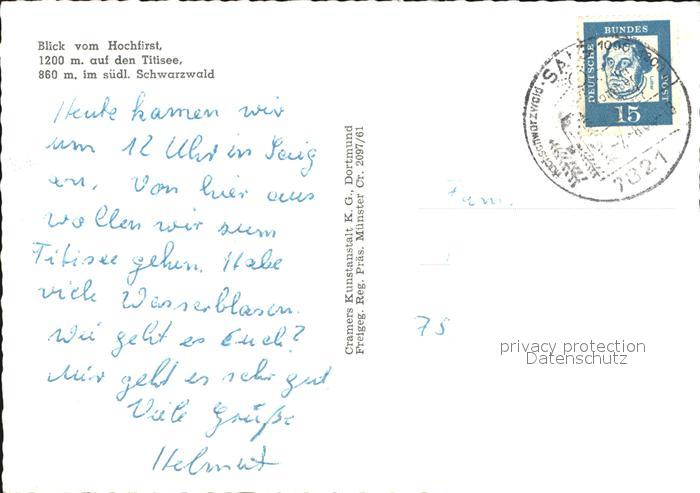 Blick vom Hochfirst,
1200 m. auf den Titisee,
860 m. im südl. Schwarzwald
Heute kamen wir
um 12 Uhr in Saig
an. Von hier aus
wollen wir zum
Titisee gehen. Habe
viele Wasserblasen.
Wie geht es Euch?
Mir geht es sehr gut
Viele Grüße
Helmut
Cramers Kunstanstalt K. G., Dortmund
Freigeg. Reg. Präs. Münster Cr. 2097/61
DEUTSCHE BUNDESPOST
15
Hochschwarzwald
7821
Fam.
75
privacy protection
Datenschutz